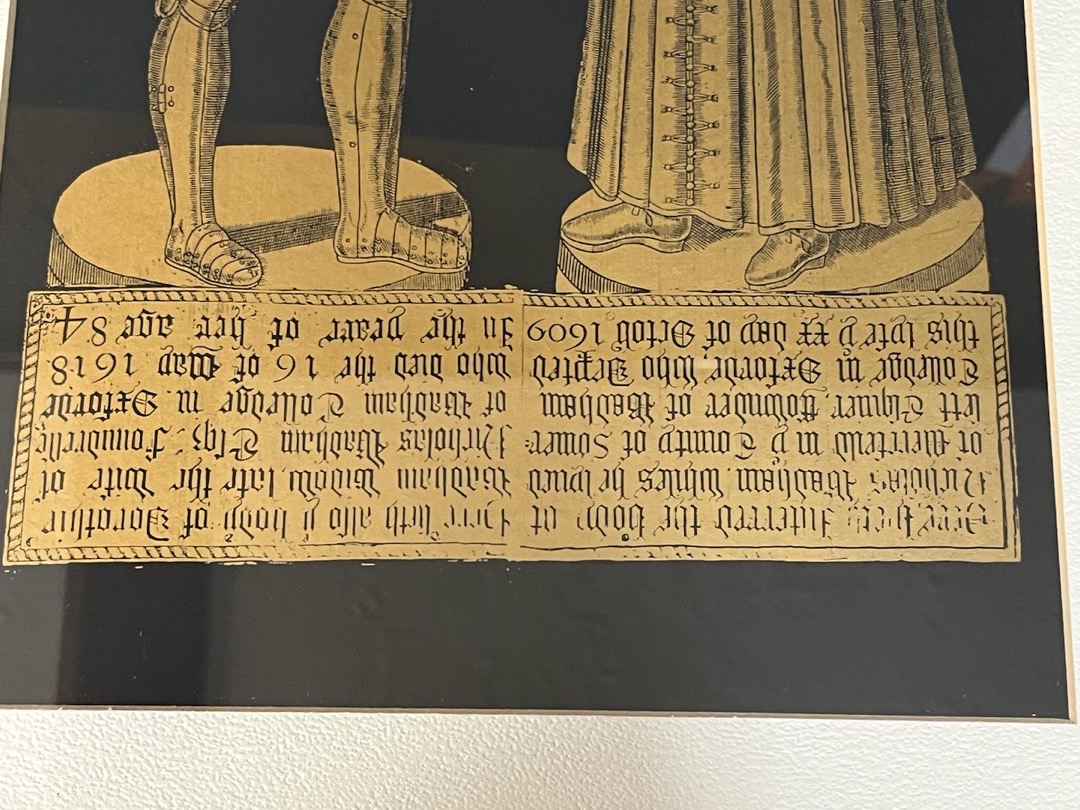 Heere lyeth Interred the body of
Nicholas Wadham, whiles he lyued
of Merefeild in yͤ County of Somer=
sett Esquier, Founder of Wadham
Colledge in Oxforde who Depted
this lyfe y xx day of Octob 1609
Here lieth also y body of Dorothie
Wadham Widow, late the wife of
Nicholas Wadham Esq. Foundresse
of Wadham Colledge in Oxforde
who died the 16 of May 1618
In the yeare of her age 84